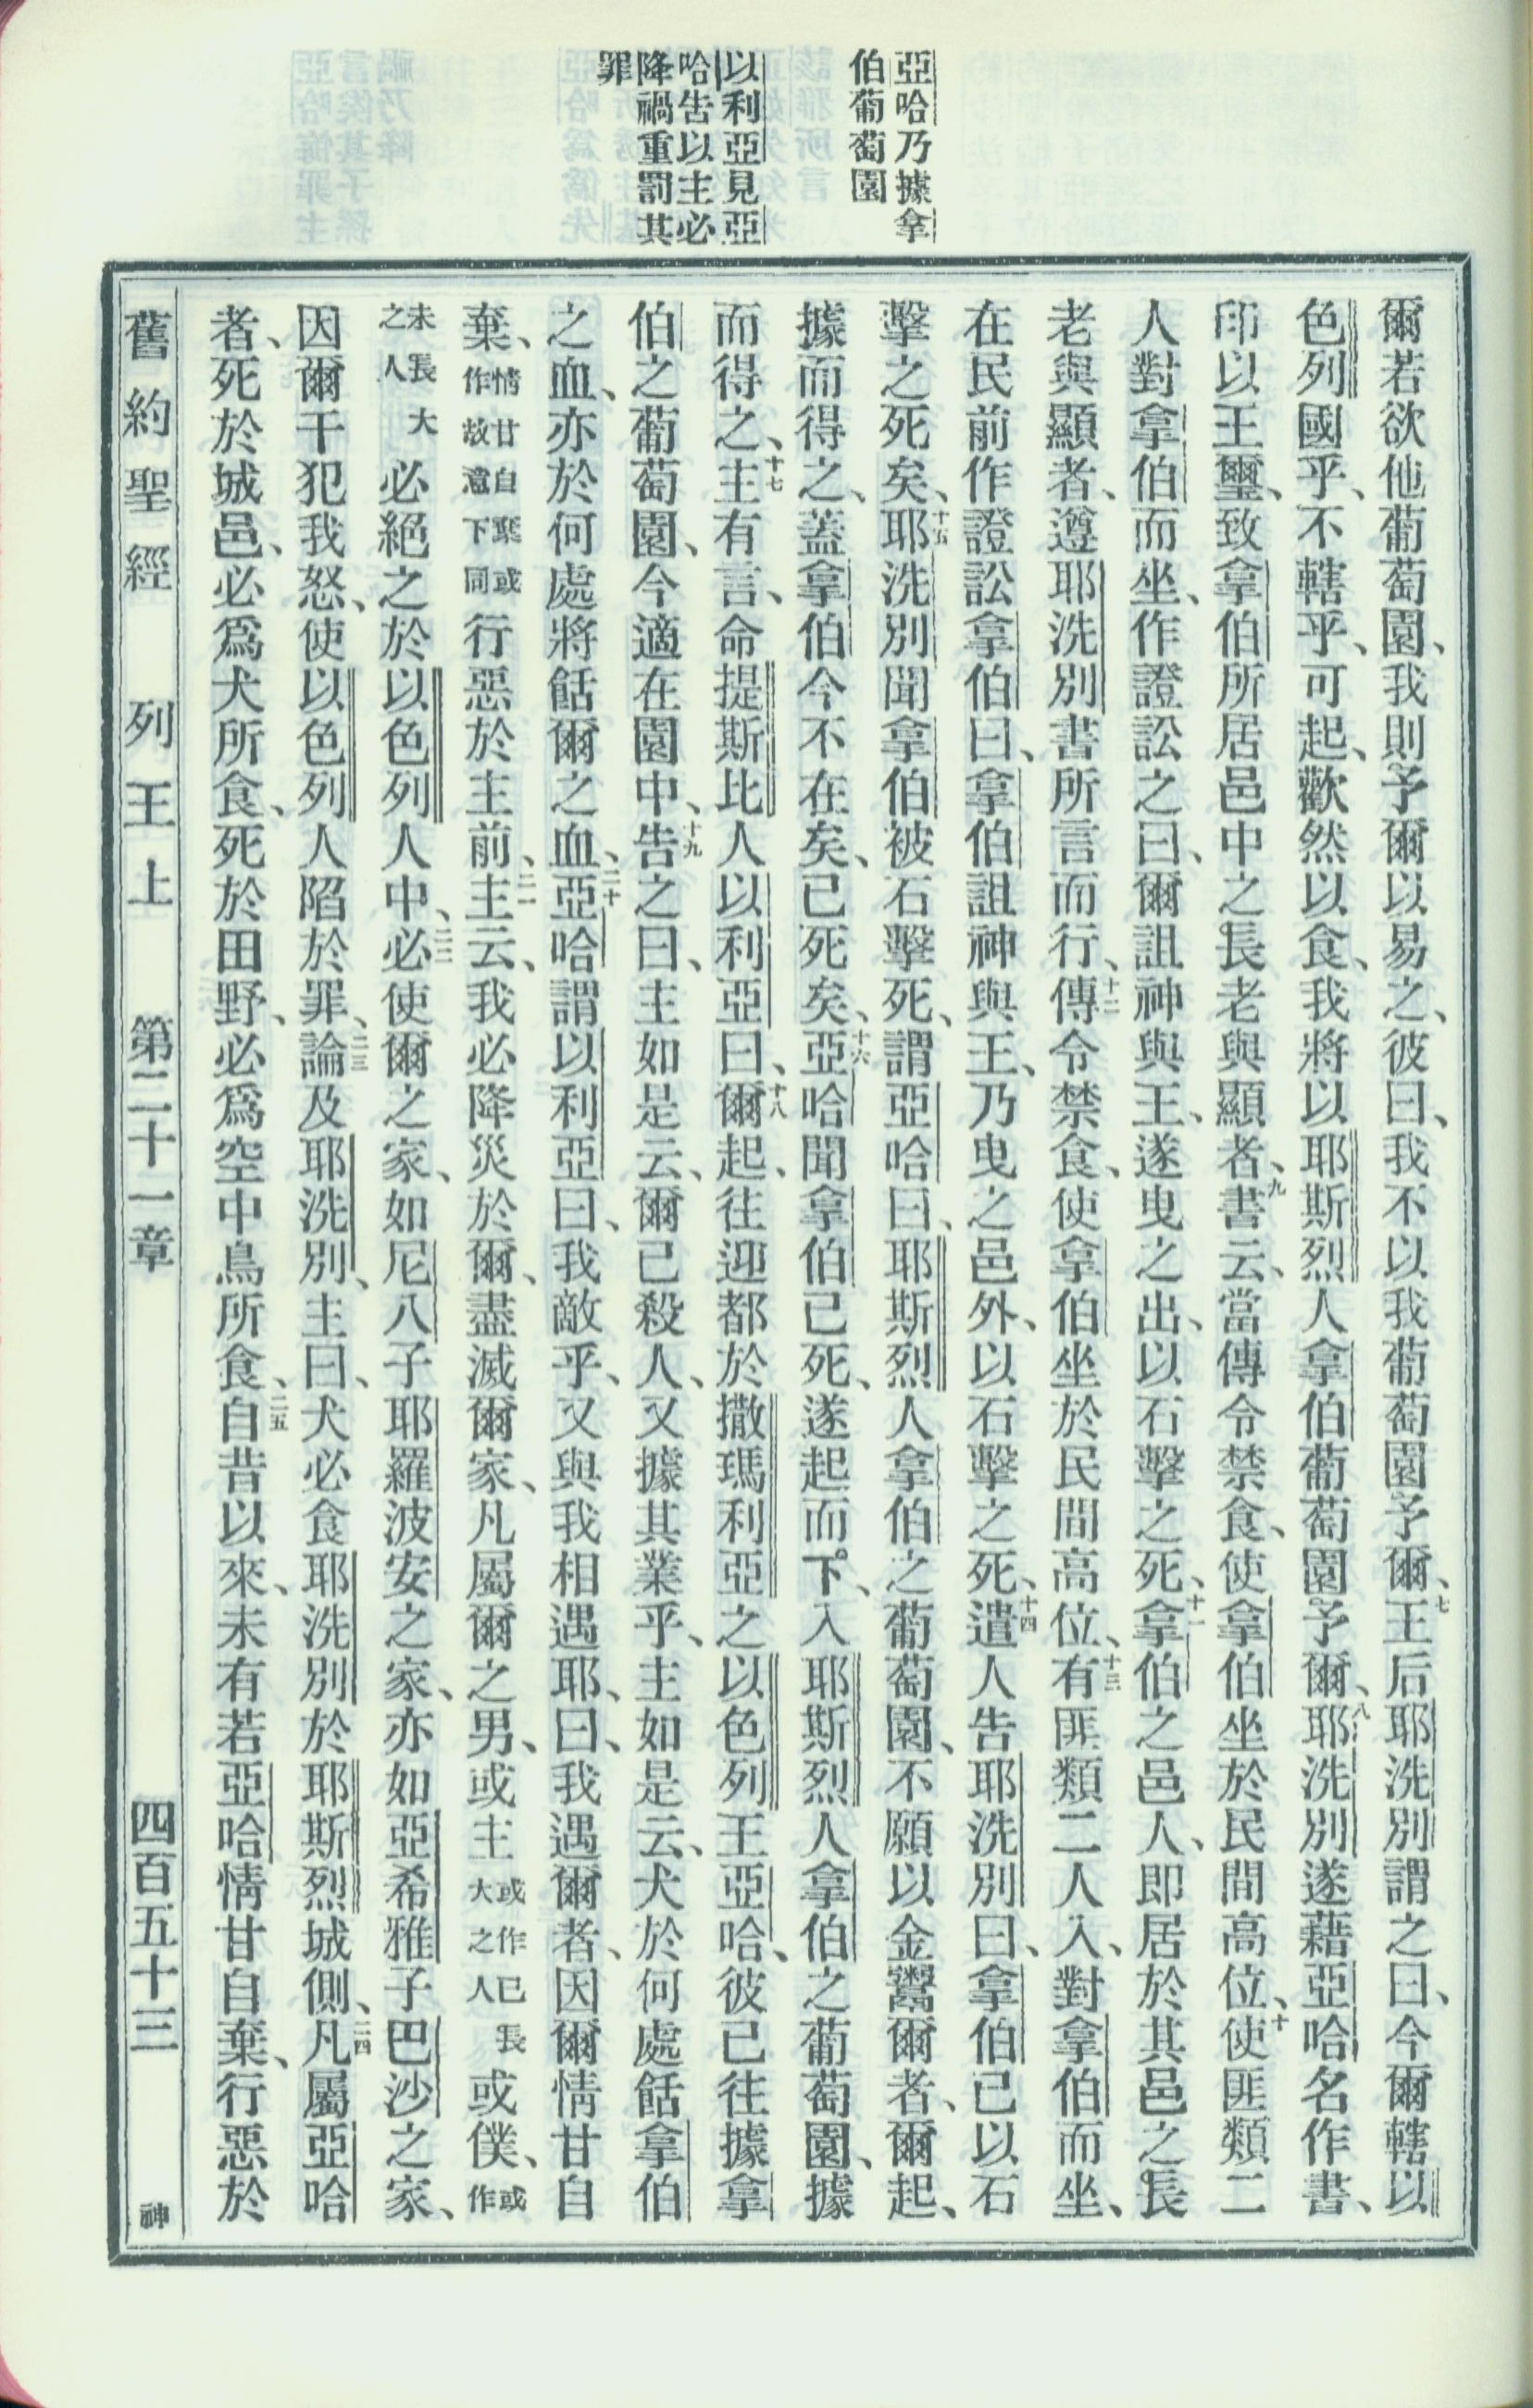 亞哈乃據拿
伯葡萄園
以利亞見亞
哈告以主必
降禍重罰其
罪
爾若欲他葡萄園、我則予爾以易之、彼曰、我不以我葡萄園予爾、七王后耶洗別謂之曰、今爾轄以
色列國乎、不轄乎、可起、歡然以食、我將以耶斯烈人拿伯葡萄園予爾、八耶洗別遂藉亞哈名作書、
印以王璽、致拿伯所居邑中之長老與顯者、九書云、當傳令禁食、使拿伯坐於民間高位、十使匪類二
人對拿伯而坐、作證訟之曰、爾詛神與王、遂曳之出、以石擊之死、十一拿伯之邑人、即居於其邑之長
老與顯者、遵耶洗別書所言而行、十二傳令禁食、使拿伯坐於民間高位、十三有匪類二人入、對拿伯而坐、
在民前作證訟拿伯曰、拿伯詛神與王、乃曳之邑外、以石擊之死、十四遣人告耶洗別曰、拿伯已以石
擊之死矣、十五耶洗別聞拿伯被石擊死、謂亞哈曰、耶斯烈人拿伯之葡萄園、不願以金鬻爾者、爾起、
據而得之、蓋拿伯今不在矣、已死矣、十六亞哈聞拿伯已死、遂起而下、入耶斯烈人拿伯之葡萄園、據
而得之、十七主有言、命提斯比人以利亞曰、十八爾起、往迎都於撒瑪利亞之以色列王亞哈、彼已往據拿
伯之葡萄園、今適在園中、十九告之曰、主如是云、爾已殺人、又據其業乎、主如是云、犬於何處餂拿伯
之血、亦於何處將餂爾之血、二十亞哈謂以利亞曰、我敵乎、又與我相遇耶、曰、我遇爾者、因爾情甘自
棄、情甘自棄或作故意下同行惡於主前、二一主云、我必降災於爾、盡滅爾家、凡屬爾之男、或主或作已長大之人或僕、或作
未長大之人必絕之於以色列人中、二二必使爾之家、如尼八子耶羅波安之家、亦如亞希雅子巴沙之家、
因爾干犯我怒、使以色列人陷於罪、二三論及耶洗別、主曰、犬必食耶洗別於耶斯烈城側、二四凡屬亞哈
者、死於城邑、必爲犬所食、死於田野、必爲空中鳥所食、二五自昔以來、未有若亞哈情甘自棄、行惡於
舊約聖經 列王上 第二十一章 四百五十三 神